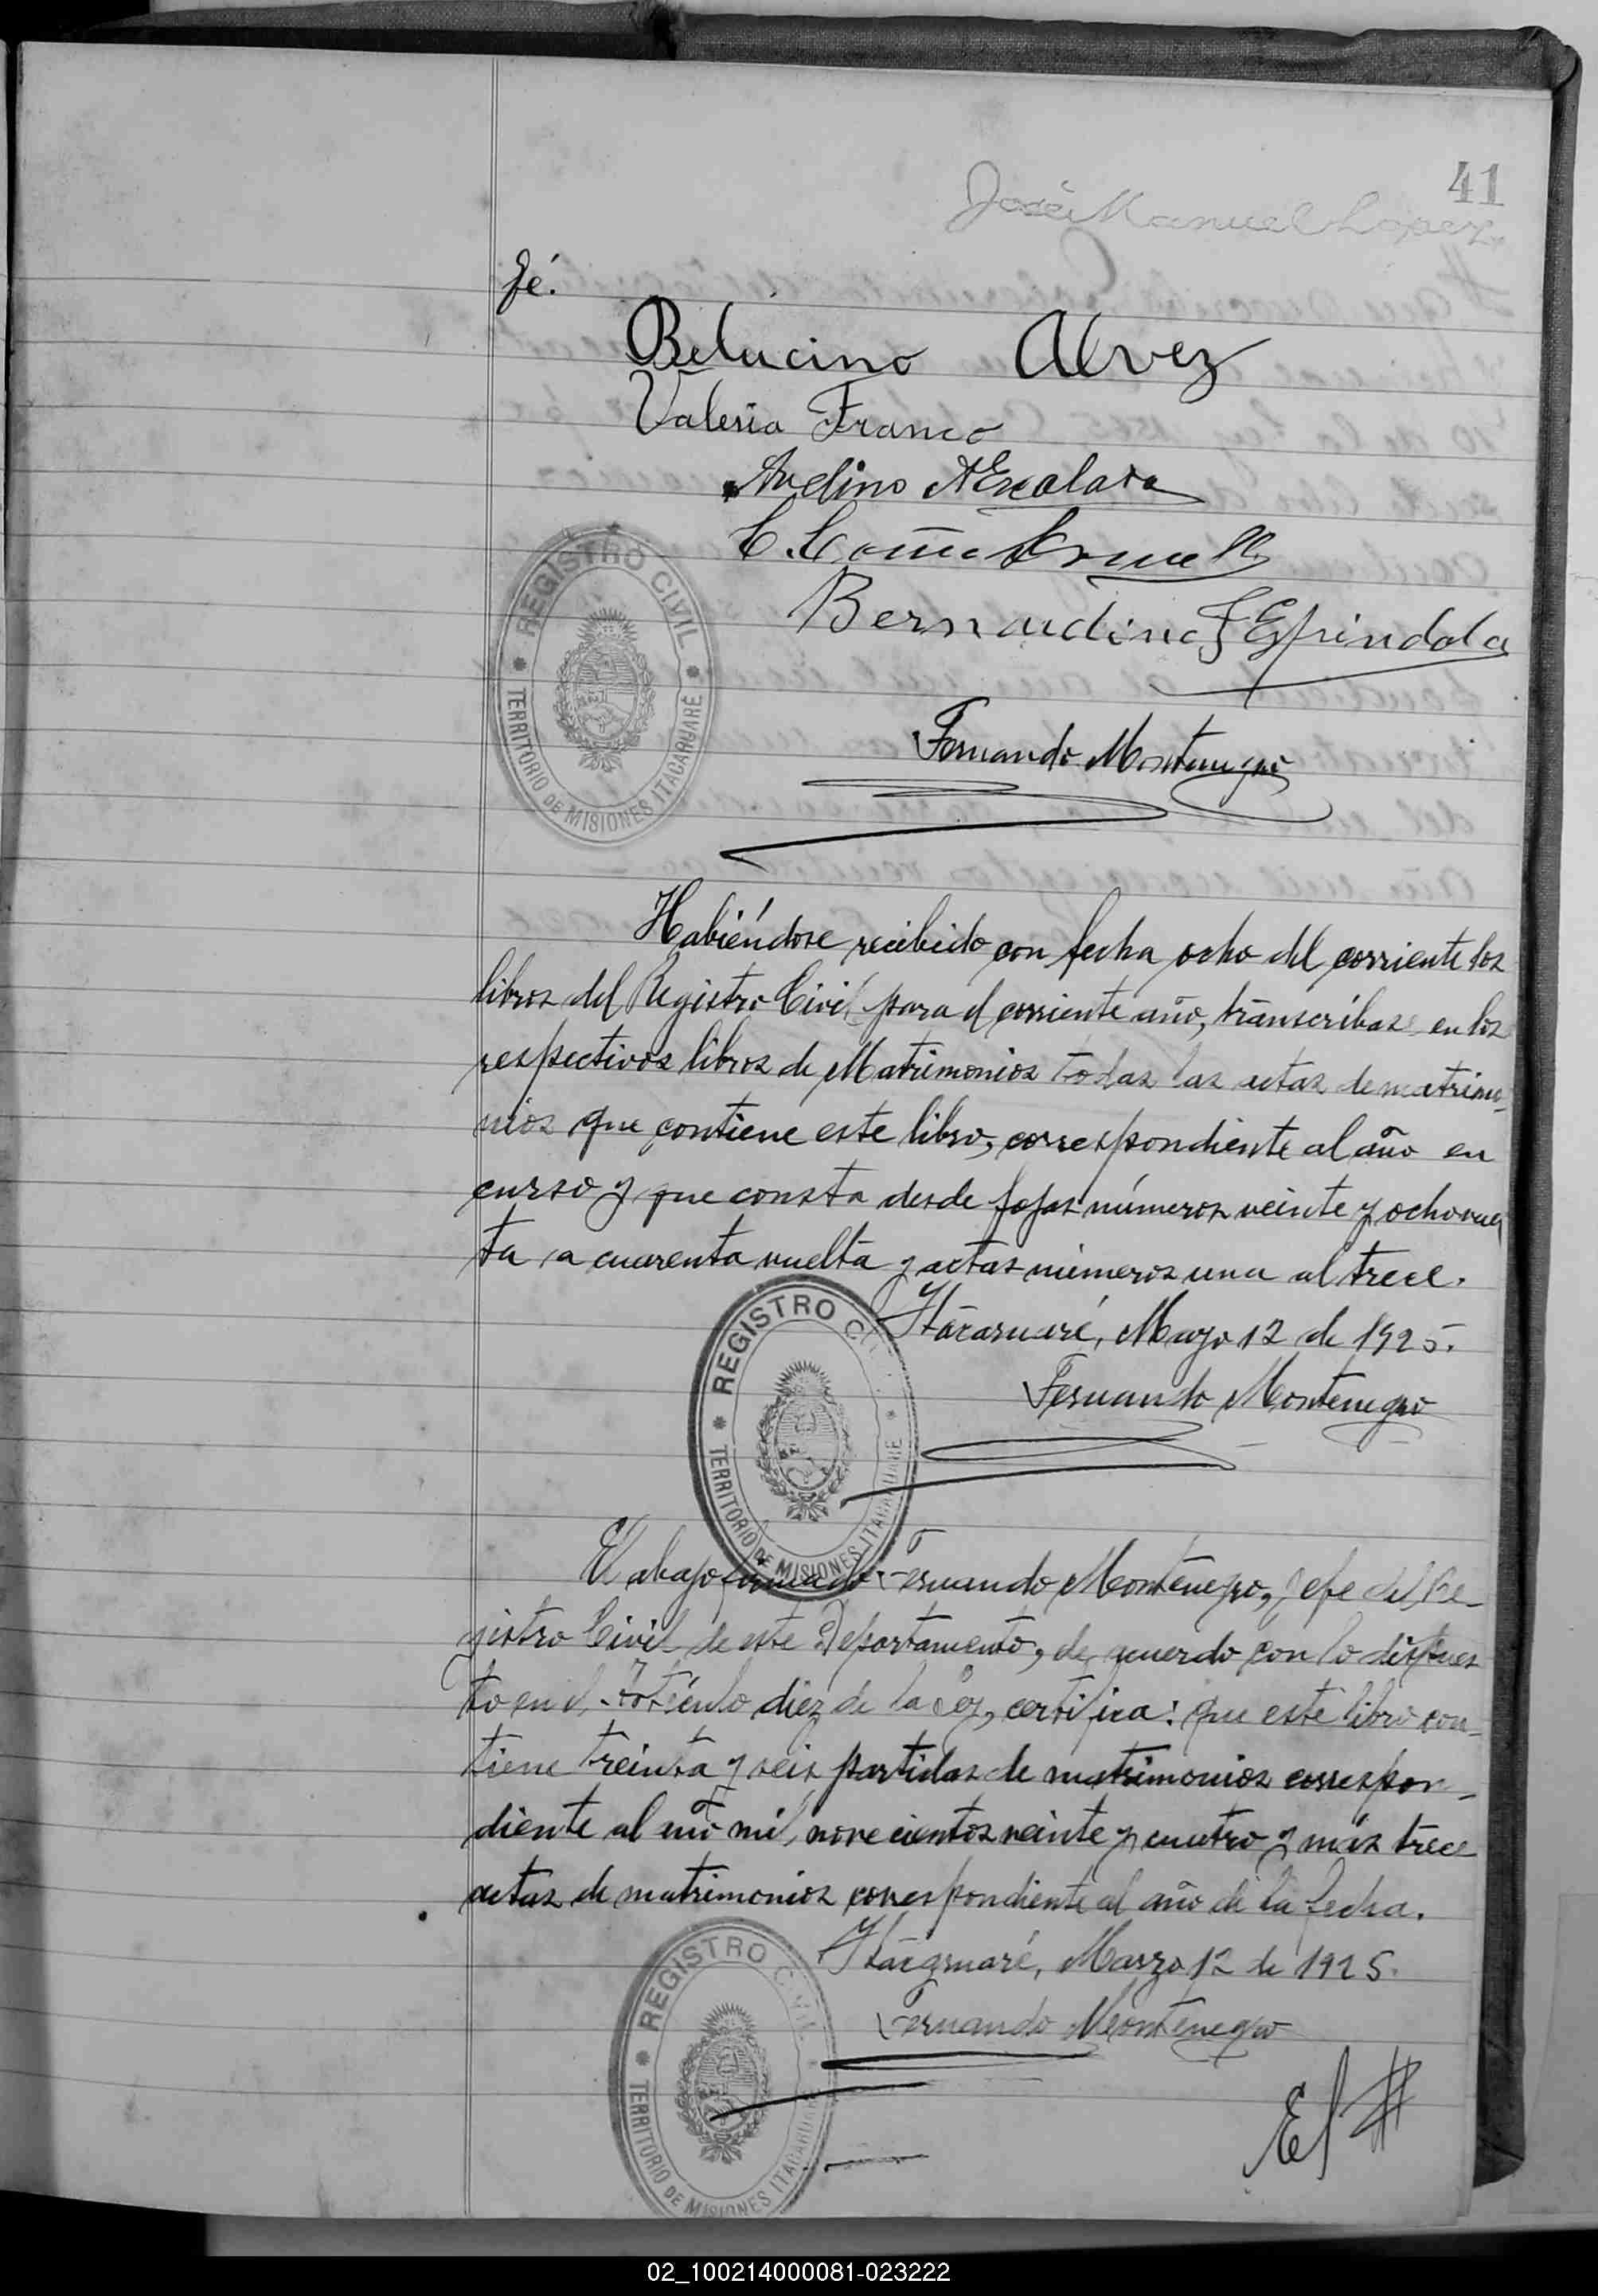 41
José Manuel Lopez
fé.
Belucino Alvez
Valeria Franco
Avelino A Escalara
Bernardino F Espindola
REGISTRO CIVIL
TERRITORIO DE MISIONES ITACARUARÉ
Fernando Montenegro
Habiéndose recibido con fecha ocho del corriente los
libros del Registro Civil para el corriente año, transcríbase en los
respectivos libros de Matrimonios todas las actas de matrimo-
nios que contiene este libro, correspondiente al año en
curso y que consta desde fojas números veinte y ocho vuel
ta a cuarenta vuelta y actas números una al trece.
Itacaruaré, Marzo 12 de 1925.
REGISTRO CIVIL
TERRITORIO DE MISIONES ITACARUARE
Fernando Montenegro
El abajo firmado Fernando Montenegro, Jefe del Re-
gistro Civil de este Departamento, de acuerdo con lo dispues
to en el Artículo diez de la Ley, certifica: que este libro con-
tiene treinta y seis partidas de matrimonios correspon-
diente al año mil novecientos veinte y cuatro y más trece
actas de matrimonios correspondiente al año de la fecha.
Itacaruaré, Marzo 12 de 1925.
REGISTRO CIVIL
TERRITORIO DE MISIONES ITACARUARE
Fernando Montenegro
02_100214000081-023222